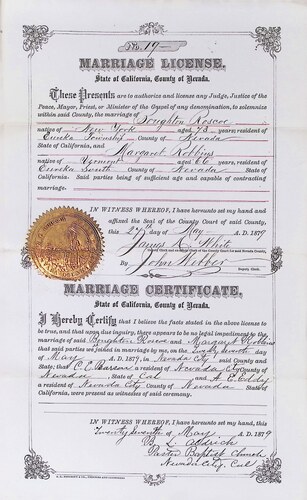 No. 19
MARRIAGE LICENSE.
State of California, County of Nevada.
These Presents are to authorize and license any Judge, Justice of the
Peace, Mayor, Priest, or Minister of the Gospel of any denomination, to solemnize
within said County, the marriage of Boughton Roscoe
native of New York aged 73 years, resident of
Eureka Township County of Nevada
State of California, and Margaret Robbins
native of Vermont aged 66 years, resident of
Eureka South County of Nevada State of
California. Said parties being of sufficient age and capable of contracting
marriage.
IN WITNESS WHEREOF, I have hereunto set my hand and
affixed the Seal of the County Court of said County,
this 27th day of May A. D. 1879
James D. White
County Clerk and ex-officio Clerk of the County Court in and for Nevada County.
By John Webber
Deputy Clerk.
MARRIAGE CERTIFICATE.
State of California, County of Nevada.
I Hereby Certify that I believe the facts stated in the above license
to be true, and that upon due inquiry, there appears to be no legal impediment to the
marriage of said Boughton Roscoe and Margaret Robbins
that said parties were joined in marriage by me, on the Twenty seventh day
of May A. D. 1879, in Nevada City said County and
State; that C. C. a resident of Nevada City County of
Nevada State of Cal and A. C. Eddy
a resident of Nevada City County of Nevada State of
California, were present as witnesses of said ceremony.
IN WITNESS WHEREOF, I have hereunto set my hand, this
Twenty Seventh of May, A. D. 1879
B. L. Aldrich
Pastor Baptist Church
Nevada City, Cal